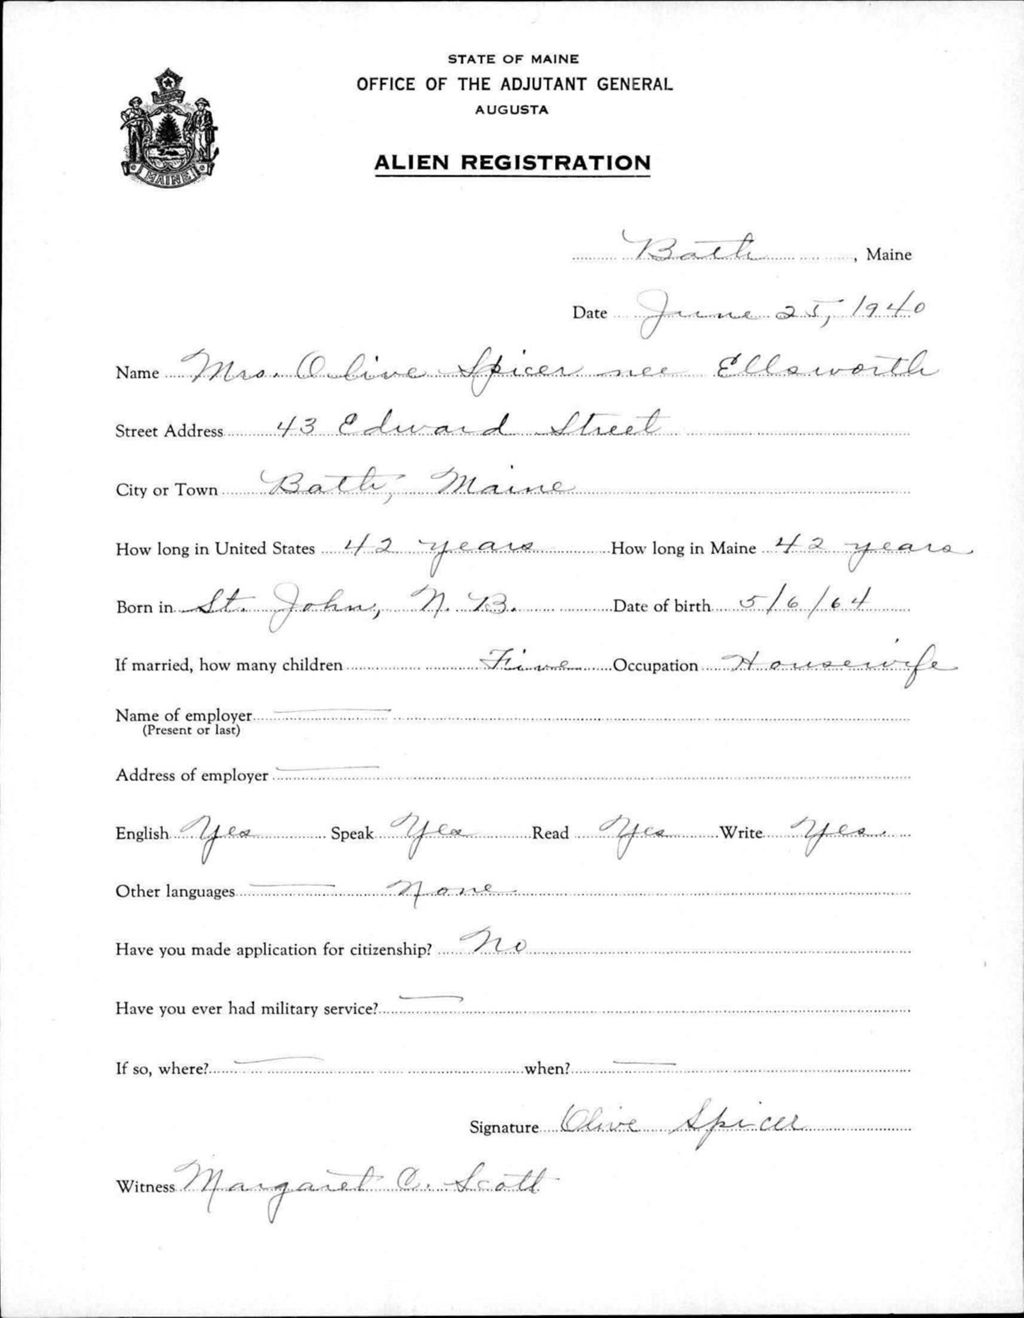 STATE OF MAINE
OFFICE OF THE ADJUTANT GENERAL
AUGUSTA
ALIEN REGISTRATION
MAINE
Bath, Maine
Date June 25, 1940
Name Mrs. Olive Spicer nee Ellsworth
Street Address 43 Edward Street
City or Town Bath, Maine
How long in United States 42 years How long in Maine 42 years
Born in St. John, N. B. Date of birth 5/6/64
If married, how many children Five Occupation Housewife
Name of employer
(Present or last)
Address of employer
English Yes Speak Yes Read Yes Write Yes.
Other languages None
Have you made application for citizenship? No
Have you ever had military service?
If so, where? when?
Signature Olive Spicer
Witness Margaret C. Scott